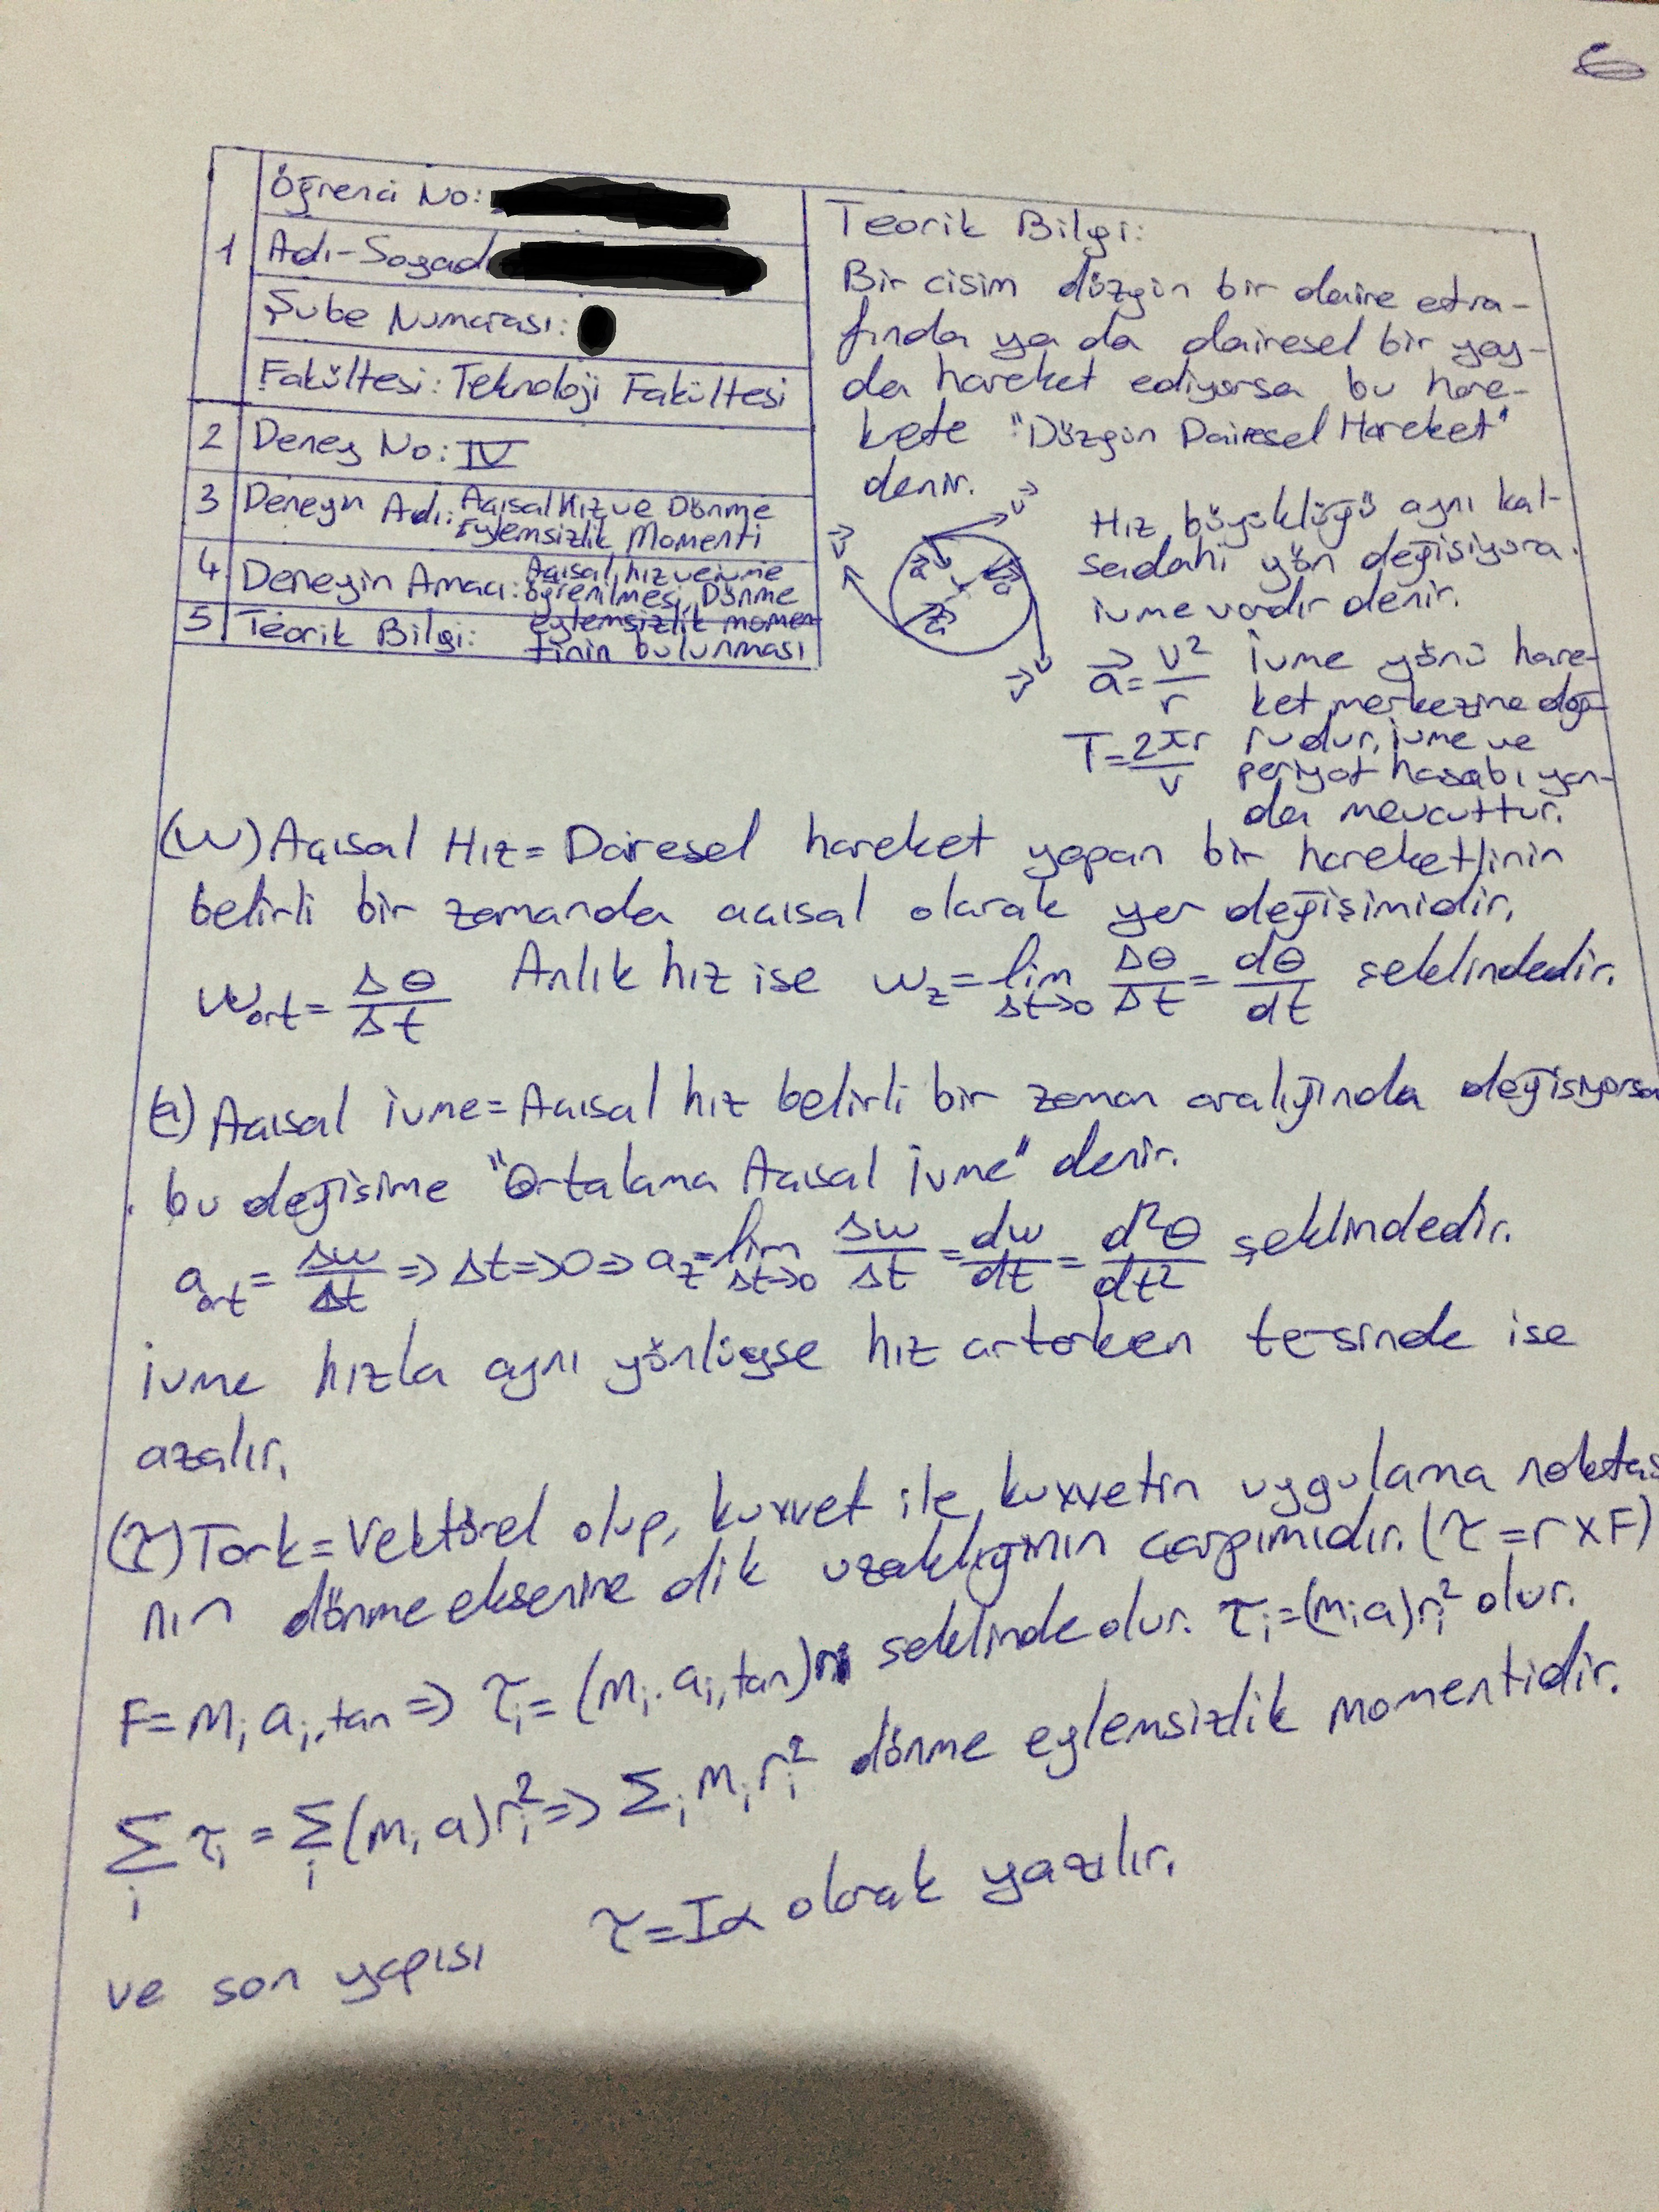 6
1
Öğrenci No:
Adı-Soyadı
Şube Numarası:
Fakültesi: Teknoloji Fakültesi
2 Deney No: IV
3 Deneyin Adı: Açısal Hız ve Dönme
Eylemsizlik Momenti
4 Deneyin Amacı: Açısal hız ve ivme
öğrenilmesi, Dönme
eylemsizlik momen-
tinin bulunması
5 Teorik Bilgi:
Teorik Bilgi:
Bir cisim düzgün bir daire etra-
fında ya da dairesel bir yay-
da hareket ediyorsa bu hare-
kete "Düzgün Dairesel Hareket"
denir.
Hız büyüklüğü aynı kal-
sadahi yön değişiyora
ivme vardır denir.
a⃗ = v²/r İvme yönü hare-
ket merkezine doğ-
T = 2πr/v rudur, ivme ve
periyot hesabı yan-
da mevcuttur.
v⃗ v⃗ v⃗
a⃗ a⃗ a⃗
(w) Açısal Hız = Dairesel hareket yapan bir hareketlinin
belirli bir zamanda açısal olarak yer değişimidir.
w_ort = Δθ/Δt Anlık hız ise w_z = lim Δt→0 Δθ/Δt = dθ/dt şeklindedir.
(a) Açısal ivme = Açısal hız belirli bir zaman aralığında değişiyorsa
bu değişime "Ortalama Açısal İvme" denir.
a_ort = Δw/Δt => Δt => 0 => a_z = lim Δt→0 Δw/Δt = dw/dt = d²θ/dt² şeklindedir.
İvme hızla aynı yönlüyse hız artarken tersinde ise
azalır.
(τ) Tork = Vektörel olup, kuvvet ile kuvvetin uygulama noktası
nın dönme eksenine dik uzaklığının çarpımıdır. (τ = r x F)
F = m_i a_i,tan => τ_i = (m_i . a_i,tan) r_i şeklinde olur. τ_i = (m_i a) r_i² olur.
Σ_i τ_i = Σ_i (m_i a) r_i² => Σ_i m_i r_i² dönme eylemsizlik momentidir.
ve son yapısı τ = Iα olarak yazılır.